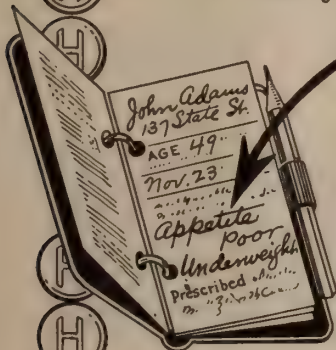 H
John Adams
137 State St.
AGE 49
Nov. 23
Appetite
Poor
Underweight
Prescribed
H